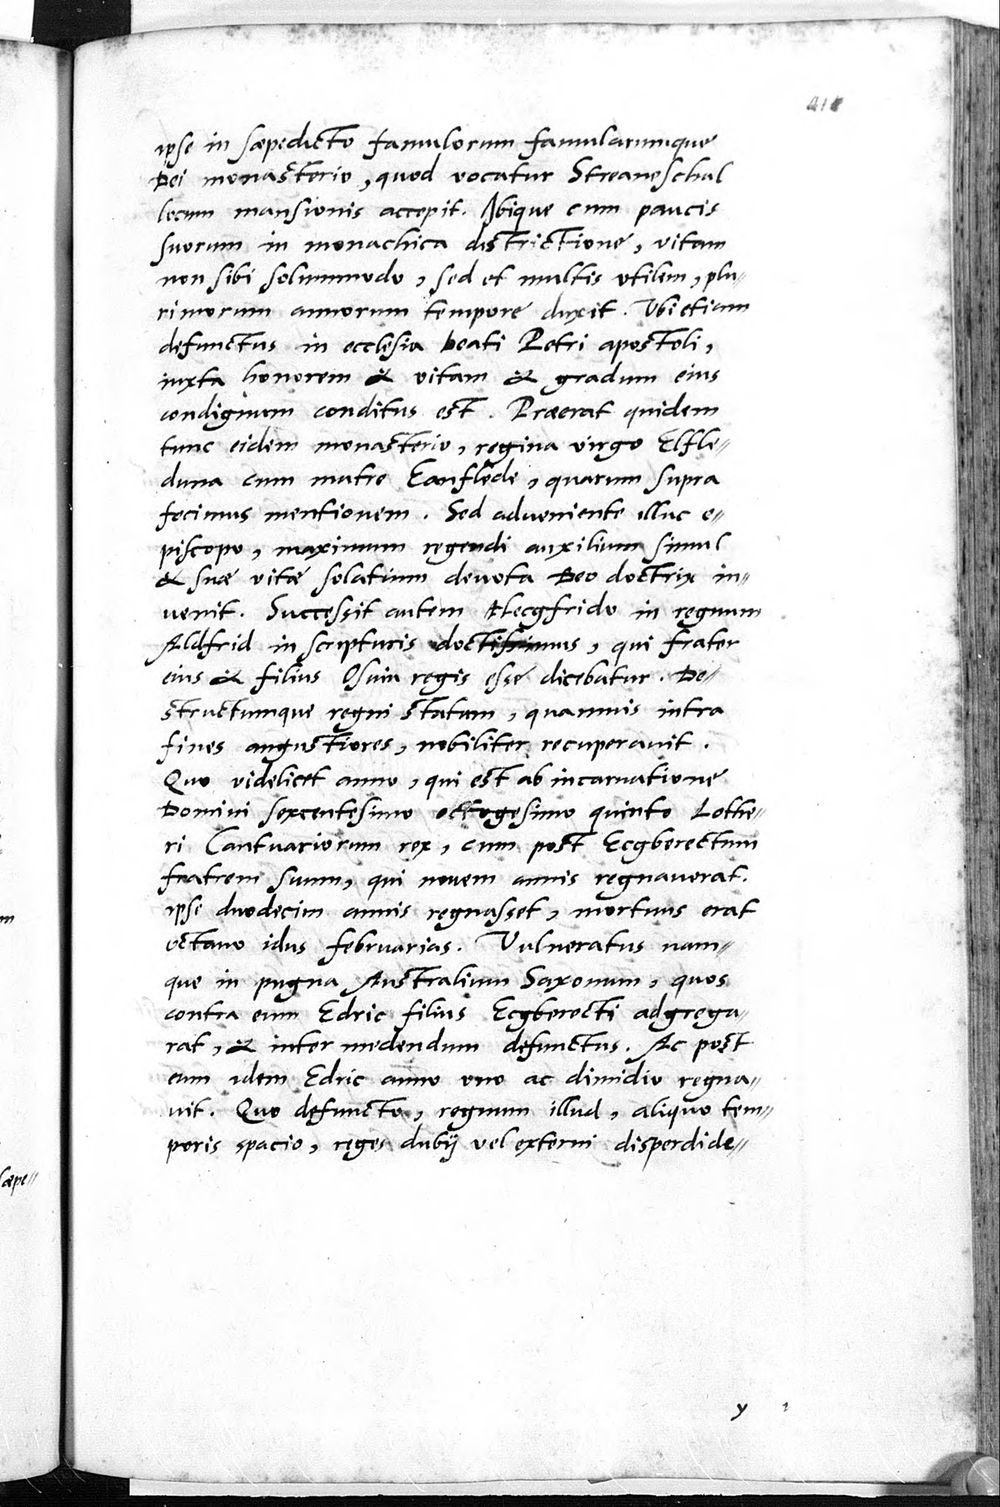 ipse in sæpedicto famulorum famularumque
Dei monasterio, quod vocatur Streaneschal
locum mansionis accepit. Ibique cum paucis
suorum in monachica districtione, vitam
non sibi solummodo, sed et multis vtilem, plu"
rimorum annorum tempore duxit. Vbi etiam
defunctus in ecclesia beati Petri apostoli,
iuxta honorem & vitam & gradum eius
condignum conditus est. Præerat quidem
tunc eidem monasterio, regina virgo Elfle"
duna cum matre Eanflede, quarum supra
fecimus mentionem. Sed adueniente illuc e"
piscopo, maximum regendi auxilium simul
& suæ vitæ solatium deuota Deo doctrix in"
uenit. Successit autem Hecgfrido in regnum
Aldfrid in scripturis doctissimus, qui frater
eius & filius Osuiu regis esse dicebatur. De"
structumque regni statum, quamuis intra
fines angustiores, nobiliter recuperauit.
Quo videlicet anno, qui est ab incarnatione
Domini sexcentesimo octogesimo quinto Lothe"
ri Cantuariorum rex, cum post Ecgberectum
fratrem suum, qui nouem annis regnauerat.
ipse duodecim annis regnasset, mortuus erat
octauo idus februarias. Vulneratus nam"
que in pugna Australium Saxonum, quos
contra eum Edric filius Ecgberecti adgrega"
rat, & inter medendum defunctus. Ac post
eum idem Edric anno vno ac dimidio regna"
uit. Quo defuncto, regnum illud, aliquo tem"
poris spacio, reges dubij vel externi disperdide"
y
sæpe"